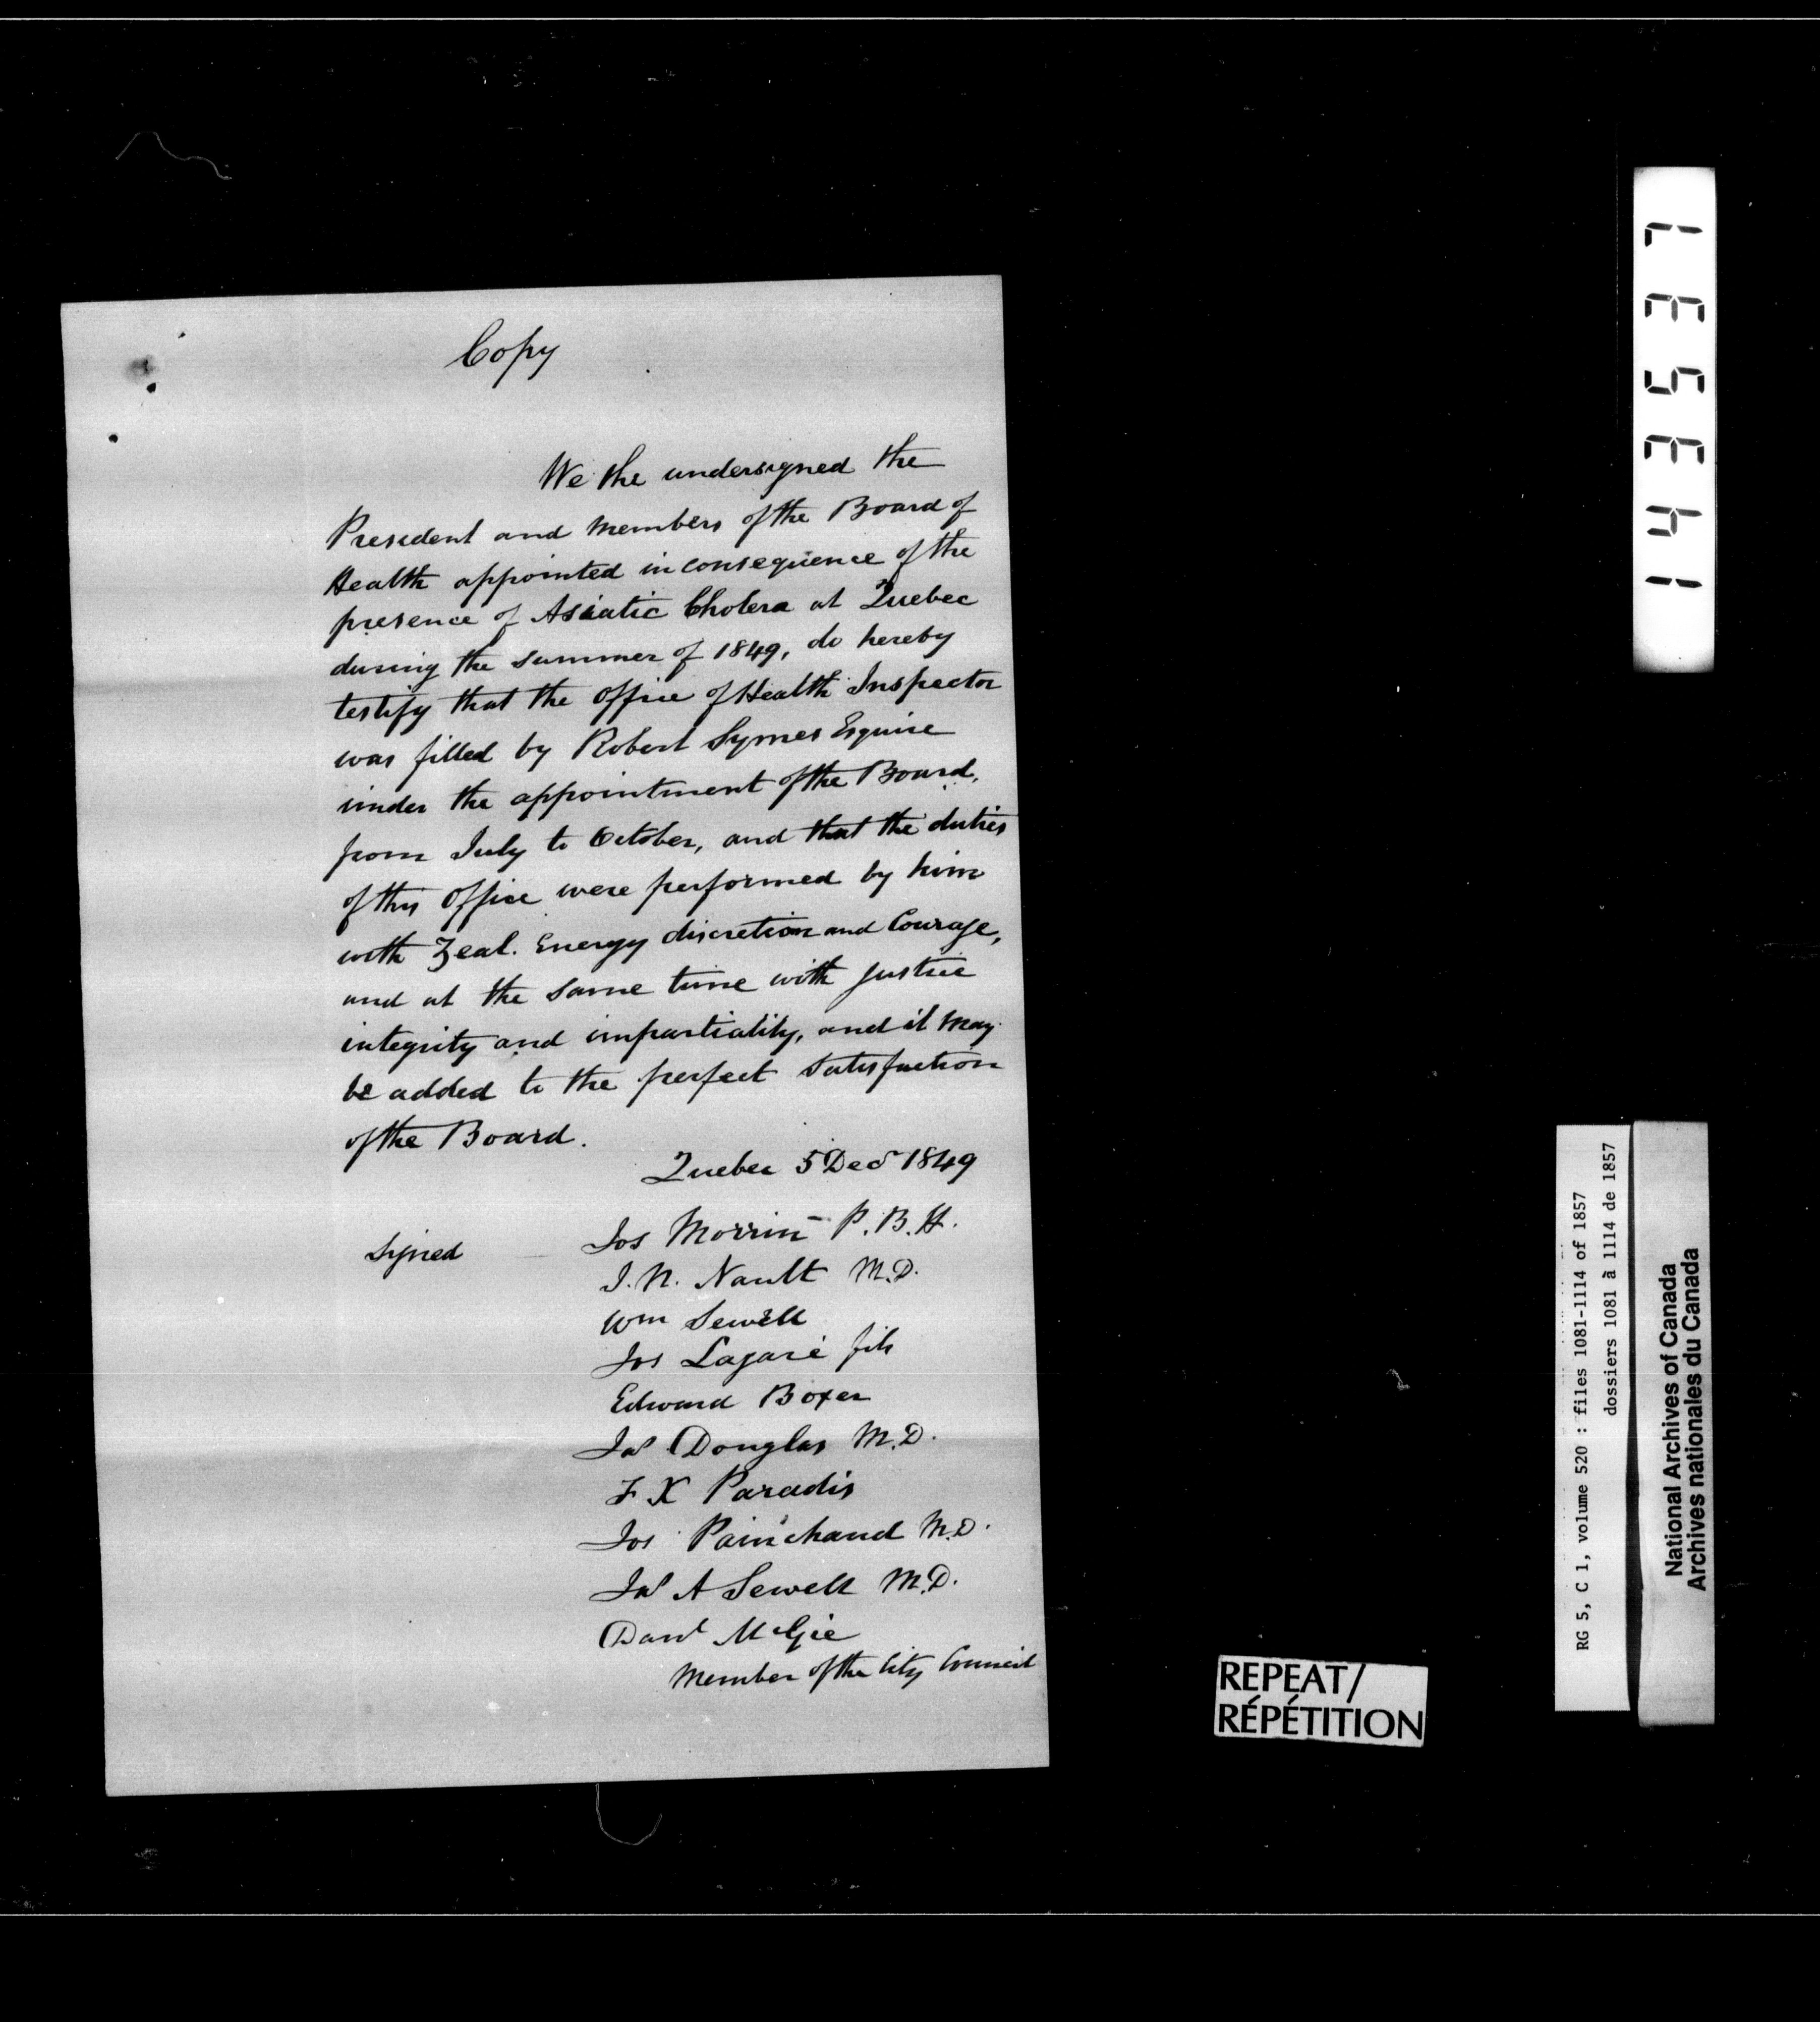 Copy
We the undersigned the
President and members of the Board of
Health appointed in consequence of the
presence of Asiatic Cholera at Quebec
during the summer of 1849, do hereby
testify that the office of Health Inspector
was filled by Robert Symes Esquire
under the appointment of the Board,
from July to October, and that the duties
of this office were performed by him
with Zeal. Energy discretion and Courage,
and at the same time with justice
integrity and impartiality, and it may
be added to the perfect satisfaction
of the Board.
Quebec 5 Decr 1849
Signed
Jos Morrin P.B.H.
J.N. Nault M.D.
Wm Sewell
Jos Legaré fils
Edward Boxer
Jas Douglas M.D.
F X Paradis
Jos Painchaud M.D.
Jas A Sewell M.D.
Danl McGie
Member of the City Council
143537
RG 5, C 1, volume 520 : files 1081-1114 of 1857
dossiers 1081 à 1114 de 1857
National Archives of Canada
Archives nationales du Canada
REPEAT/
RÉPÉTITION